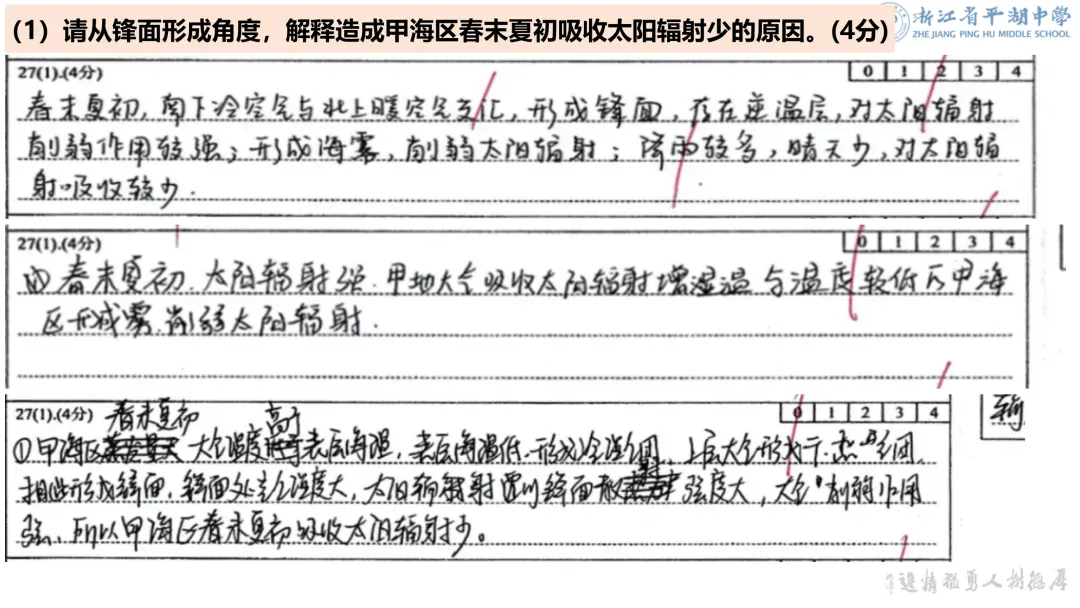 (1)请从锋面形成角度，解释造成甲海区春末夏初吸收太阳辐射少的原因。(4分)
浙江省平湖中学
ZHE JIANG PING HU MIDDLE SCHOOL
27(1).(4分) 0 1 2 3 4
春末夏初，南下冷空气与北上暖空气交汇，形成锋面，存在逆温层，对太阳辐射
削弱作用较强；形成海雾，削弱太阳辐射；降雨较多，晴天少，对太阳辐
射吸收较少.
27(1).(4分) 0 1 2 3 4
(1)春末夏初.太阳辐射强.甲地大气吸收太阳辐射增湿温与温度较低 甲海
区形成雾.削弱太阳辐射.
27(1).(4分) 0 1 2 3 4
春末夏初 高于
①甲海区 大气温度 表层海温，表层海温低.形成冷湿气团，上层大气形成干热气团，
相遇形成锋面，锋面处 强度大，太阳辐射 遇到锋面 强度大，大气削弱作用
强、所以甲海区春末夏初吸收太阳辐射少。
辐
进精猛勇人树德厚